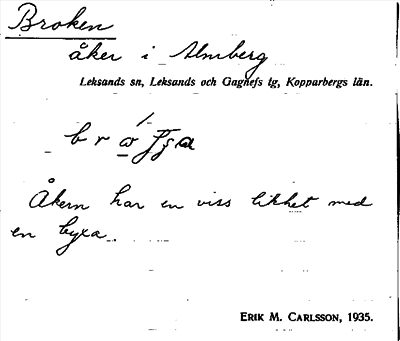 Broken
åker i Almberg
Leksands sn, Leksands och Gagnefs tg, Kopparbergs län.
Åkern har en viss likhet med
en byxa.
ERIK M. CARLSSON, 1935.